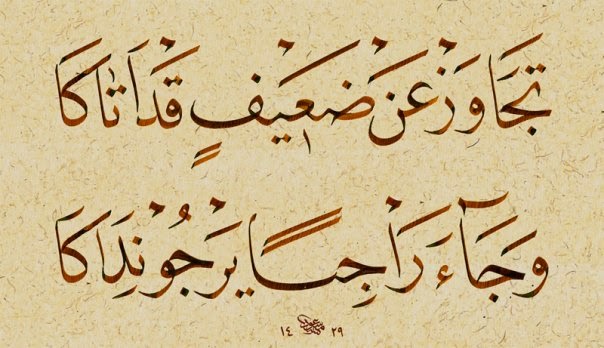 تَجَاوَزْ عَنْ ضَعِيفٍ قَدْ أَتَاكَا
وَجَآءَ رَاجِياً يَرْجُو نِدَاكَا
١٤ ٢٩